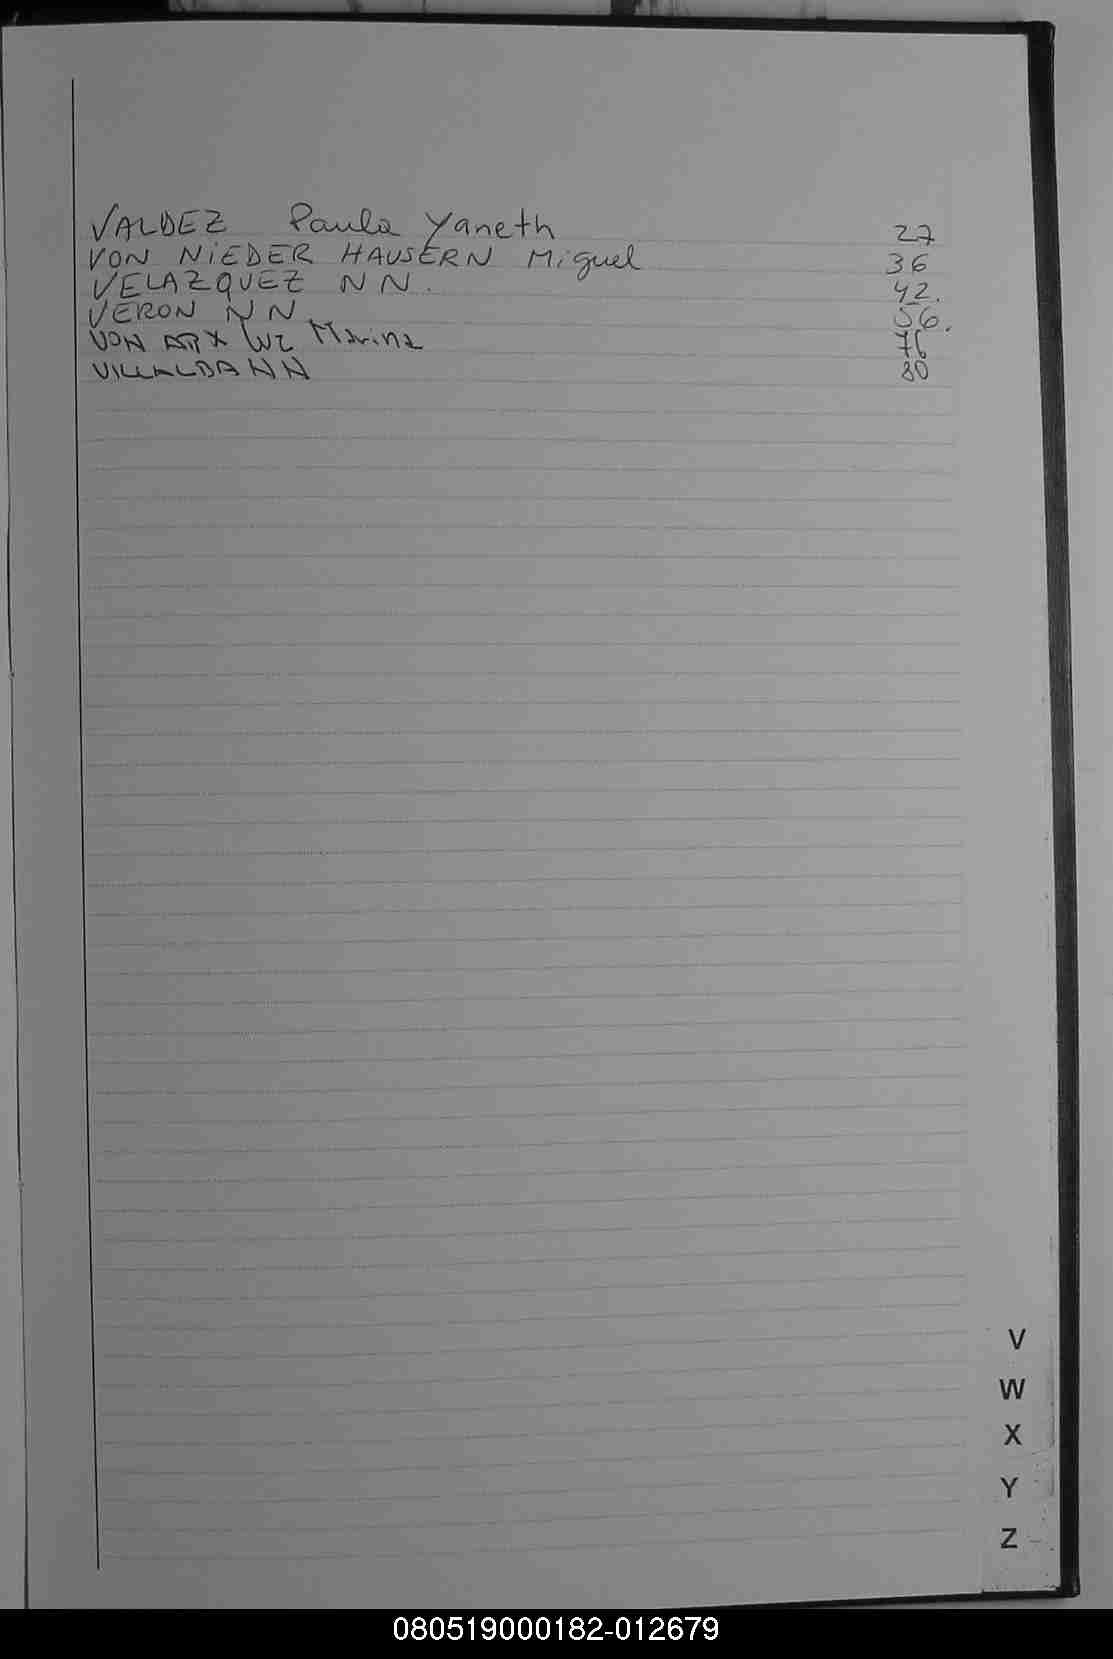 VALDEZ Paula Yaneth 27
VON NIEDER HAUSERN Miguel 36
VELAZQUEZ NN. 42.
VERON NN 56.
VON ARX Luz Marina 76
VILLALBA NN 80
V
W
X
Y
Z
080519000182-012679